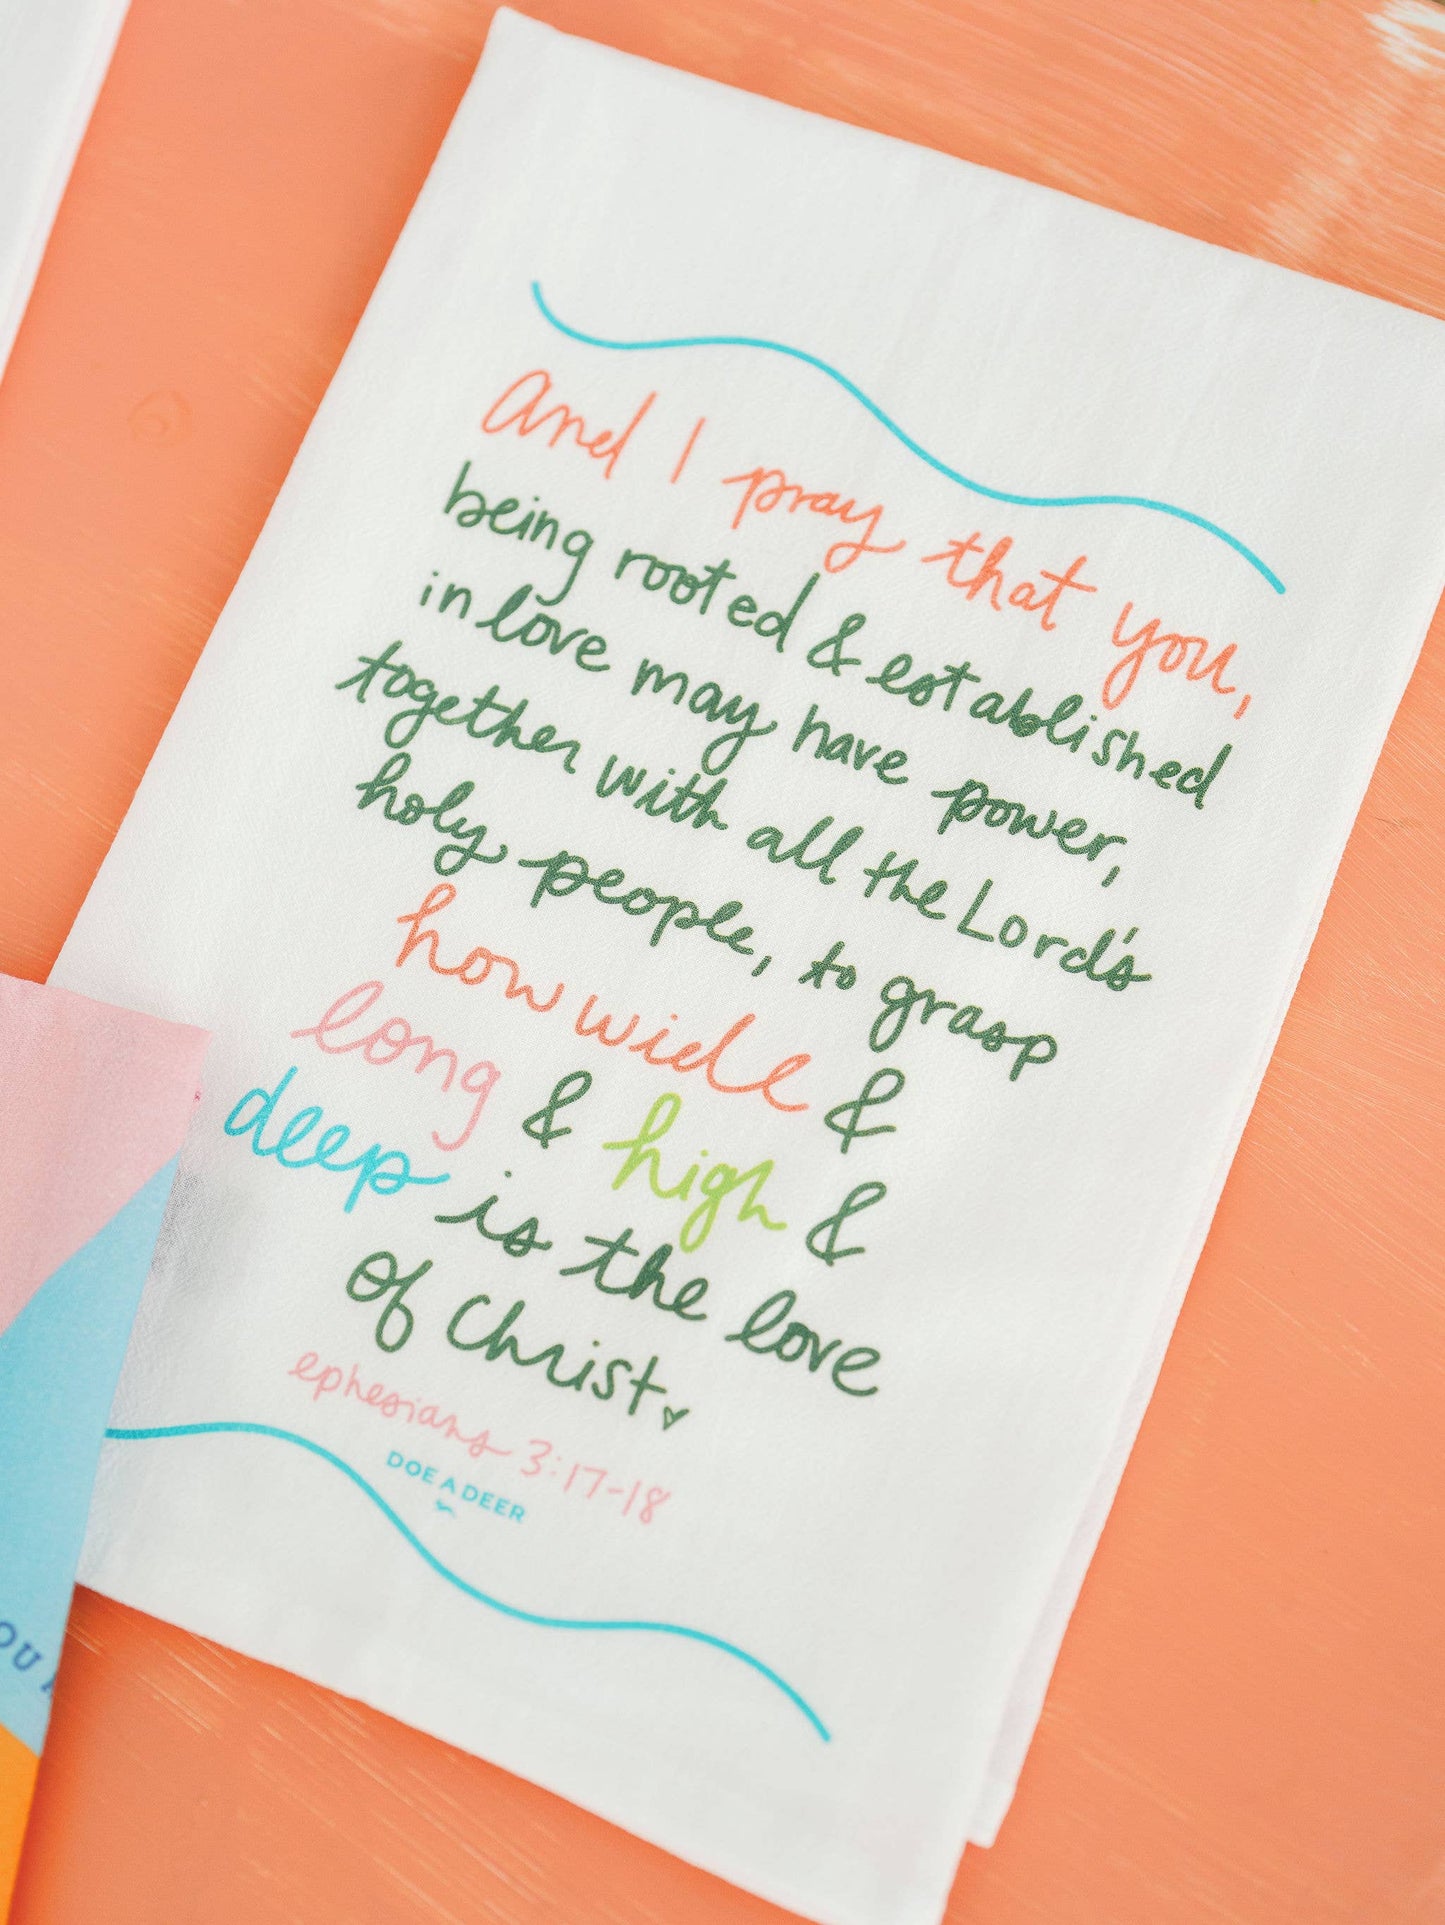 And I pray that you,
being rooted & established
in love may have power,
together with all the Lord's
holy people, to grasp
how wide &
long & high &
deep is the love
of Christ.
ephesians 3:17-18
DOE A DEER
OU